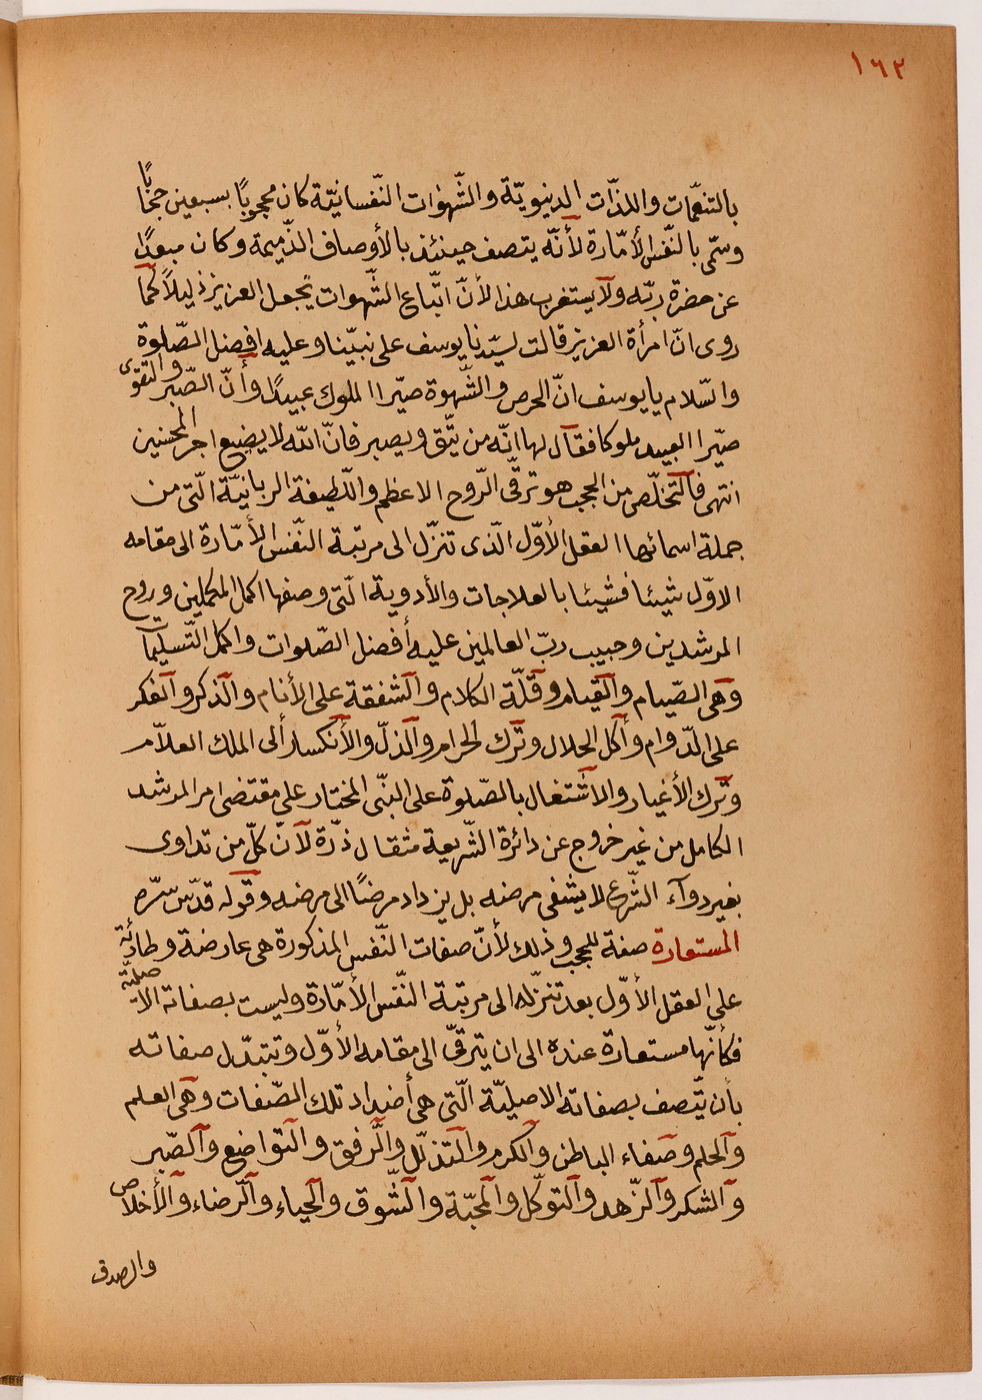 ١٦٣
بالتنعّمات واللذّات الدنيويّة والشّهوات النّفسانيّة كان محجوبًا بسبعين حجابًا
وسمّى بالنّفس الأمّارة لأنّه يتصف حينئذ بالأوصاف الذّميمة وكان مبعدًا
عن حضرة ربّه ولا يستغرب هذا لأنّ اتّباع الشّهوات يجعل العزيز ذليلاً كما
روى انّ امرأة العزيز قالت لسيّدنا يوسف على نبيّنا وعليه افضل الصّلوة
والسّلام يا يوسف انّ الحرص والشّهوة صيّرا الملوك عبيدًا وأنّ الصّبر والتقوى
صيّرا العبيد ملوكا فقال لها انّه من يتّق ويصبر فانّ اللّه لا يضيع اجر المحسنين
انتهى فالتخلّص من الحجب هو ترقّى الرّوح الاعظم واللّطيفة الربانيّة الّتى من
جملة اسمائها العقل الأوّل الّذى تنزّل الى مرتبة النّفس الأمّارة الى مقامه
الاوّل شيئا فشيئا بالعلاجات والأدوية الّتى وصفها اكمل المكملين وروح
المرشدين وحبيب ربّ العالمين عليه أفضل الصّلوات واكمل التّسليمات
وهى الصّيام والقيام وقلّة الكلام والشفقة على الأنام والذكر والفكر
على الدّوام وأكل الحلال وترك الحرام والذلّ والأنكسار ألى الملك العلاّم
وترك الأغيار والاشتغال بالصّلوة على النبّى المختار على مقتضى امر المرشد
الكامل من غير خروج عن دائرة الشّريعة مثقال ذرّة لأنّ كلّ من تداوى
بغير دوآء الشّرع لا يشفى مرضه بل يزداد مرضًا الى مرضه وقوله قدّس سرّه
المستعارة صفة للحجب وذلك لأنّ صفات النّفس المذكورة هى عارضة وطارئة
على العقل الأوّل بعد تنزّله الى مرتبة النّفس الأمّارة وليست بصفاته الاصليّة
فكأنّها مستعارة عنده الى ان يترقّى الى مقامه الأوّل وتتبدّل صفاته
بأن يتّصف بصفاته الاصليّة الّتى هى أضداد تلك الصّفات وهى العلم
والحلم وصفاء الباطن والكرم والتذلّل والرفق والتواضع والصّبر
والشكر والزّهد والتوكّل والمحبّة والشّوق والحياء والرّضاء والأخلاص
والصدق